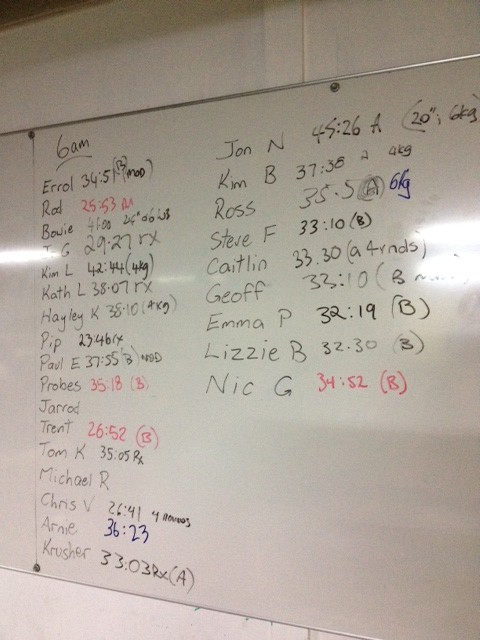 6am
Errol 34:51 (B) (MOD)
Rod 25:53 rx
Bowie 41:00 24"
G 29:27 rx
Kim L 42:44 (4kg)
Kath L 38:07 rx
Hayley K 38:10 (4kg)
Pip 23:46 rx
Paul E 37:55 (B) MOD
Probes 35:18 (B)
Jarrod
Trent 26:52 (B)
Tom K 35:05 Rx
Michael R
Chris V 26:41 4 rounds
Arnie 36:23
Krusher 33:03 Rx (A)
Jon N 45:26 A (20", 6kg
Kim B 37:38 A 4kg
Ross 35:5 (A) 6kg
Steve F 33:10 (B)
Caitlin 33.30 (a 4rnds)
Geoff 33:10 (B
Emma P 32:19 (B)
Lizzie B 32.30 (B)
Nic G 34:52 (B)